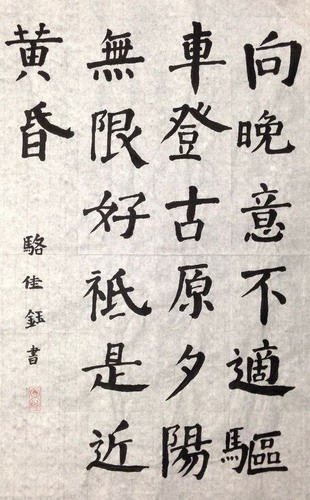 向晚意不適驅
車登古原夕陽
無限好祗是近
黄昏
駱佳鈺書